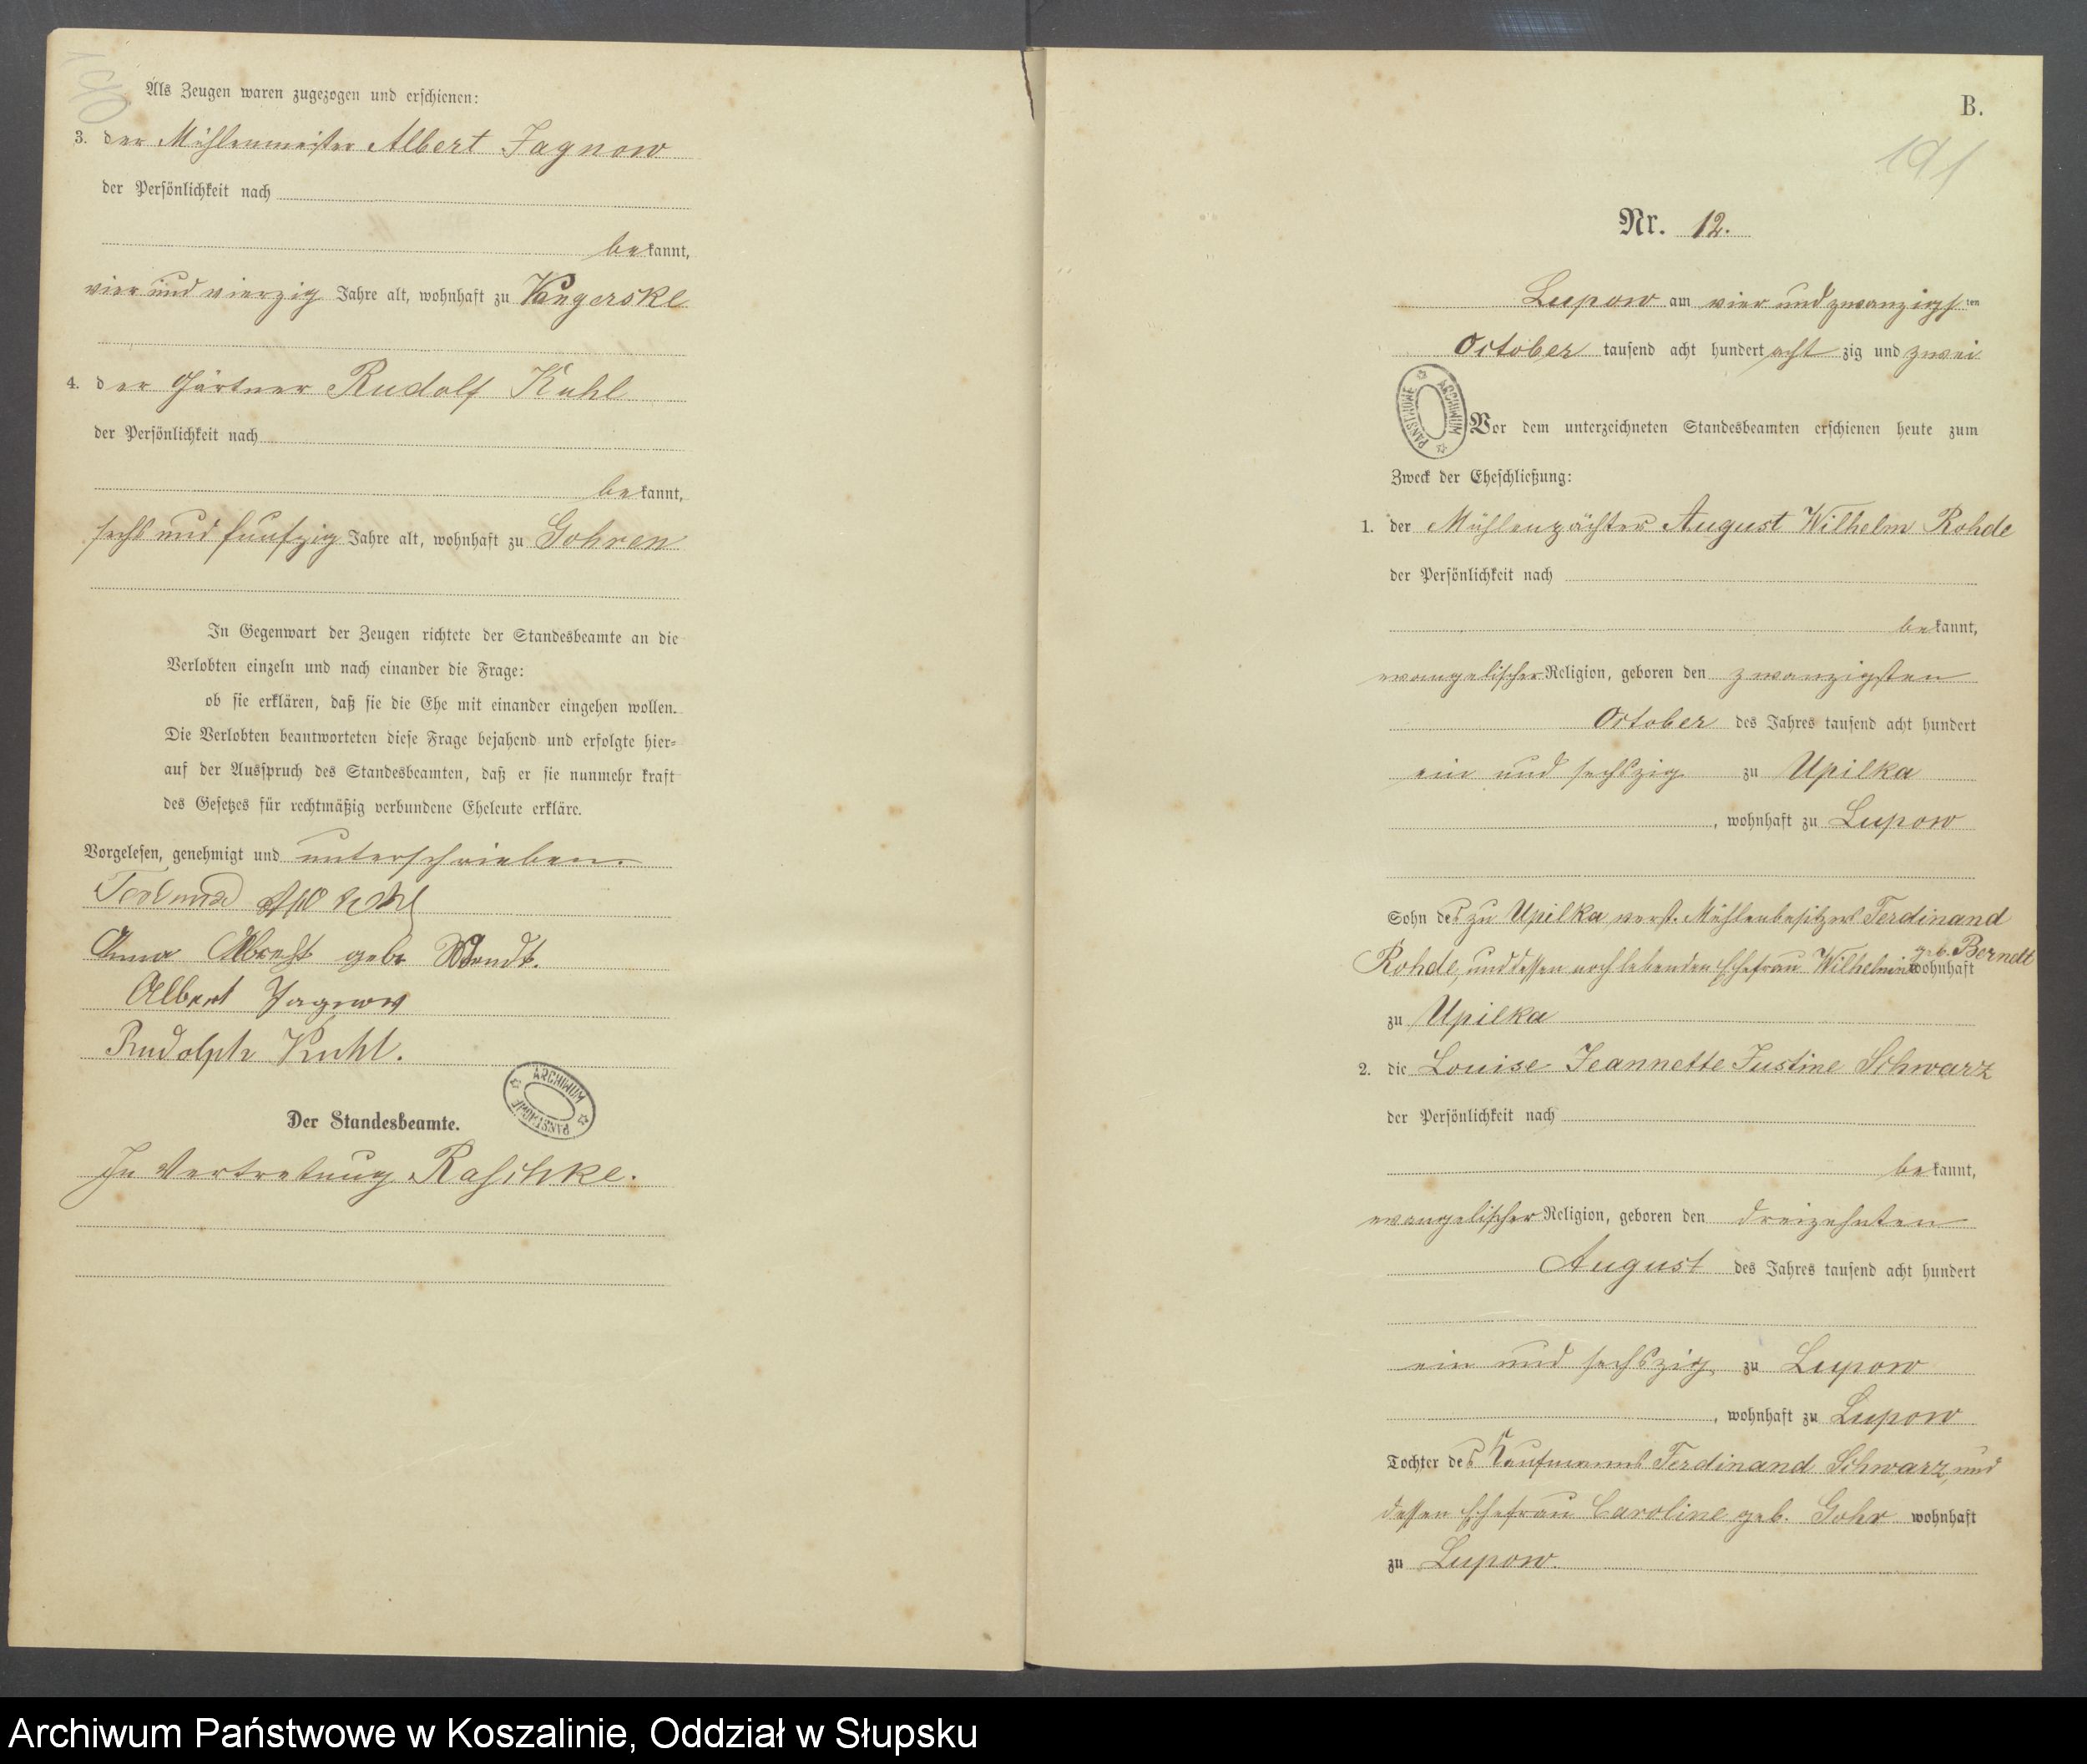 Als Zeugen waren zugezogen und erschienen:
3. der Mühlenmeister Albert Jagnow
der Persönlichkeit nach
bekannt,
vier und vierzig Jahre alt, wohnhaft zu Vangerske
4. der Gärtner Rudolf Kuhl
der Persönlichkeit nach
bekannt,
sechs und funfzig Jahre alt, wohnhaft zu Gohren
In Gegenwart der Zeugen richtete der Standesbeamte an die
Verlobten einzeln und nach einander die Frage:
ob sie erklären, daß sie die Ehe mit einander eingehen wollen.
Die Verlobten beantworteten diese Frage bejahend und erfolgte hier=
auf der Ausspruch des Standesbeamten, daß er sie nunmehr kraft
des Gesetzes für rechtmäßig verbundene Eheleute erkläre.
Vorgelesen, genehmigt und unterschrieben.
Anna Albreht gebr Wendt.
Albert Jagnow
Rudolph Kuhl.
ARCHIWUM PAŃSTWOWE
Der Standesbeamte.
In Vertretung Raschke.
B.
191
Nr. 12.
Lupow am vier und zwanzigsten
October tausend acht hundert achtzig und zwei
ARCHIWUM PAŃSTWOWE
Vor dem unterzeichneten Standesbeamten erschienen heute zum
Zweck der Eheschließung:
1. der Mühlenpächter August Wilhelm Rohde
der Persönlichkeit nach
bekannt,
evangelischer Religion, geboren den zwanzigsten
October des Jahres tausend acht hundert
ein und sechszig zu Upilka
, wohnhaft zu Lupow
Sohn des zu Upilka verst. Mühlenbesitzers Ferdinand
Rohde, und dessen noch lebenden Ehefrau Wilhelmine geb. Berndt wohnhaft
zu Upilka
2. die Louise Jeannette Justine Schwarz
der Persönlichkeit nach
bekannt,
evangelischer Religion, geboren den dreizehnten
August des Jahres tausend acht hundert
ein und sechszig zu Lupow
, wohnhaft zu Lupow
Tochter des Kaufmanns Ferdinand Schwarz, und
dessen Ehefrau Caroline geb. Gohr wohnhaft
zu Lupow.
Archiwum Państwowe w Koszalinie, Oddział w Słupsku